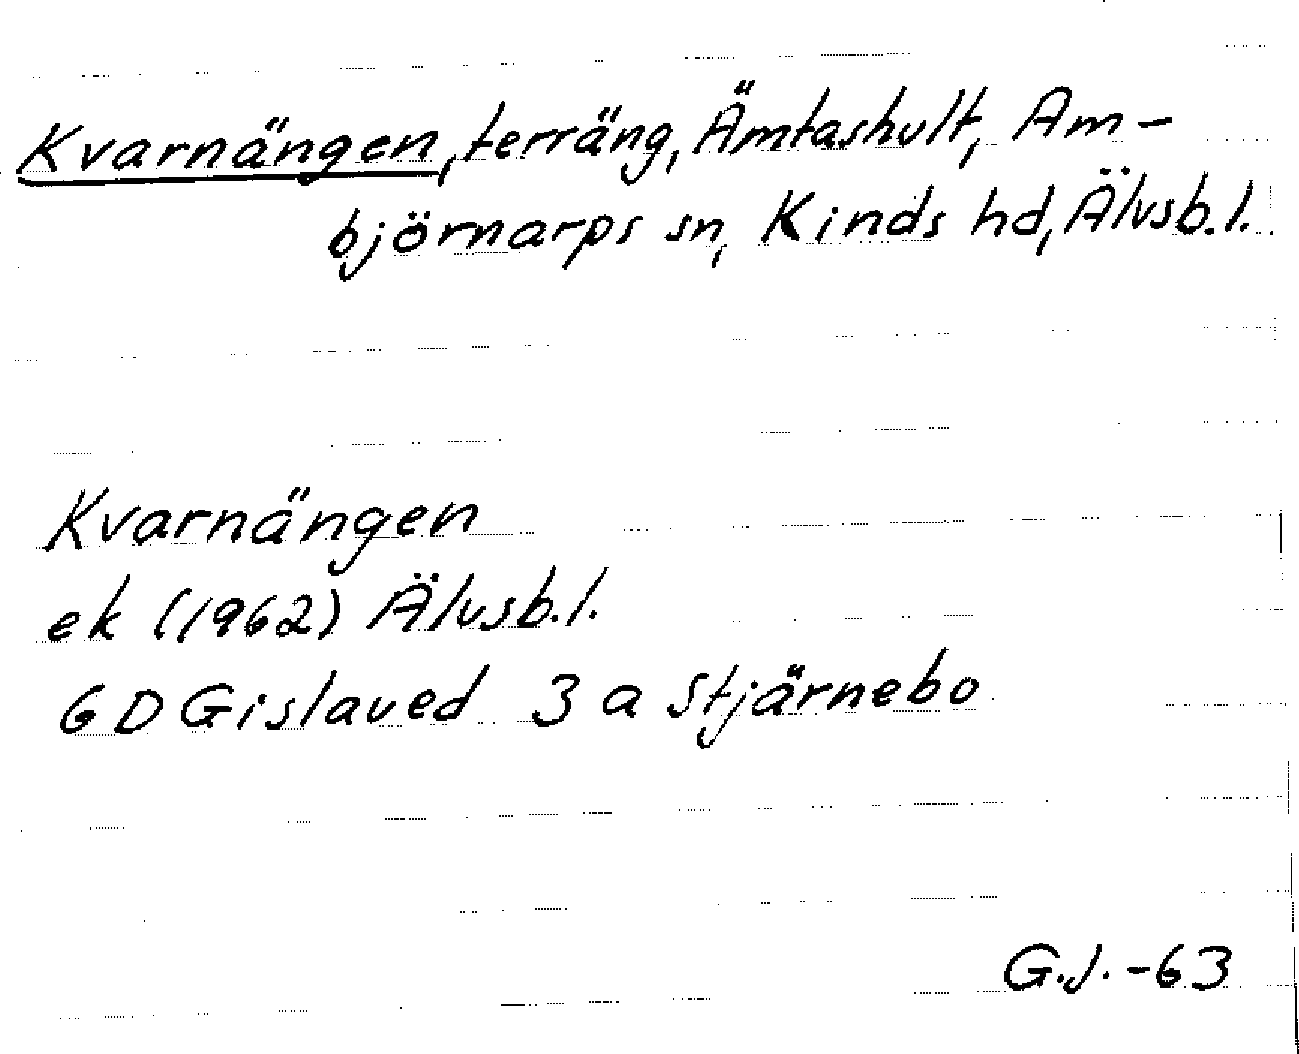 Kvarnängen, terräng, Ämtashult, Am-
björnarps sn, Kinds hd, Älvsb.l.
Kvarnängen
ek (1962) Älvsb.l.
6D Gislaved 3 a Stjärnebo
G.J.-63